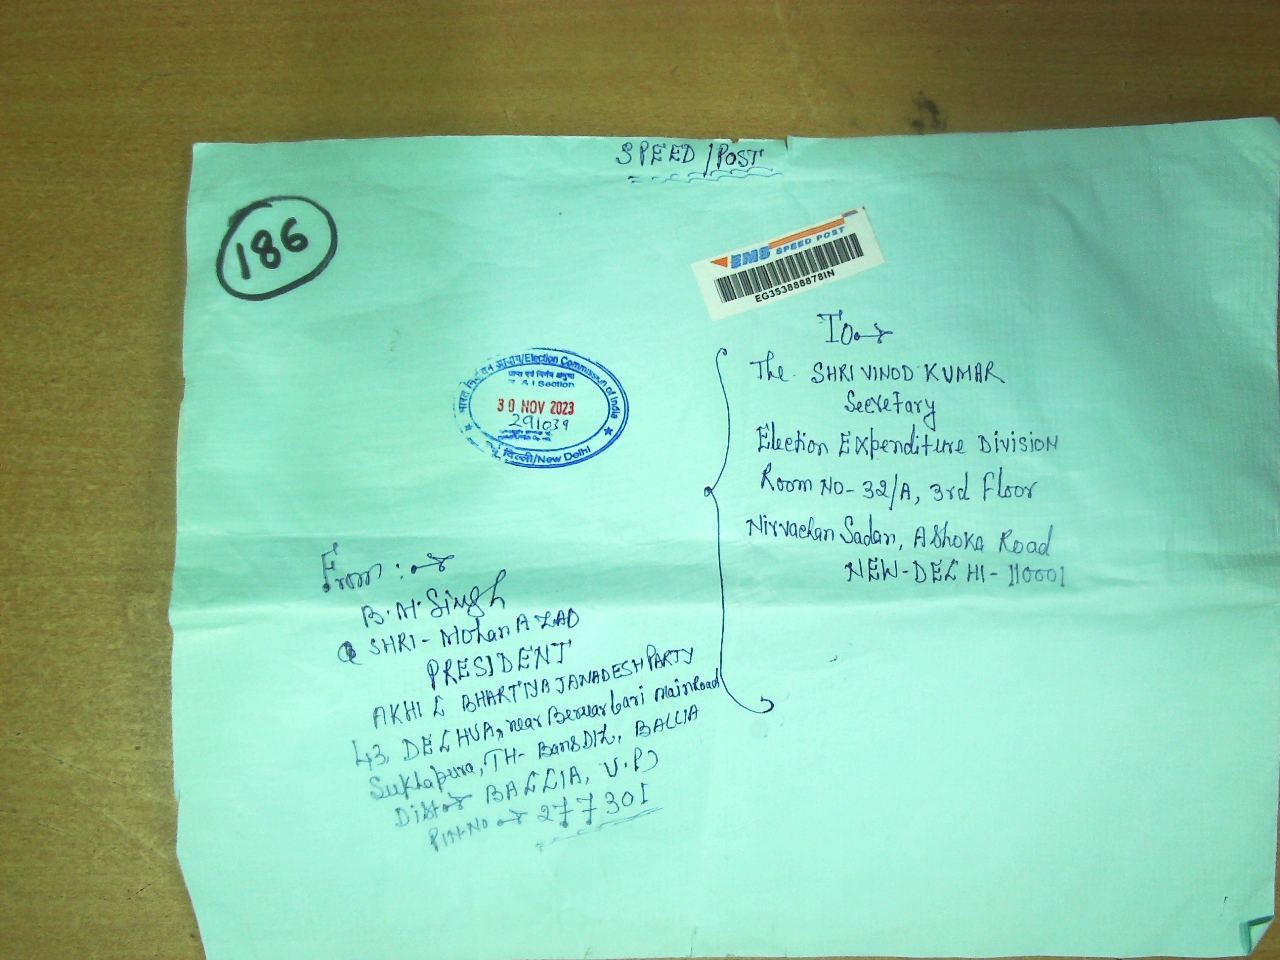 SPEED/POST
186
EMS SPEED POST
EG353888878IN
भारत निर्वाचन आयोग/Election Commission of India
& I Section
30 NOV 2023
291039
दिल्ली/New Delhi
To
The SHRI VINOD KUMAR
Secretary
Election Expenditure DIVISION
Room No-32/A, 3rd Floor
Nirvachan Sadan, AShoka Road
NEW-DELHI-110001
From:
B.M. Singh
SHRI-Mohan AZAD
PRESIDENT
AKHIL BHARTIYA JANADESH PARTY
43, DELHUA, near Beruarbari Main Road
Sukhapura, TH- BansDIH, BALLIA
Dist BALLIA, U.P)
PIN-NO 277301